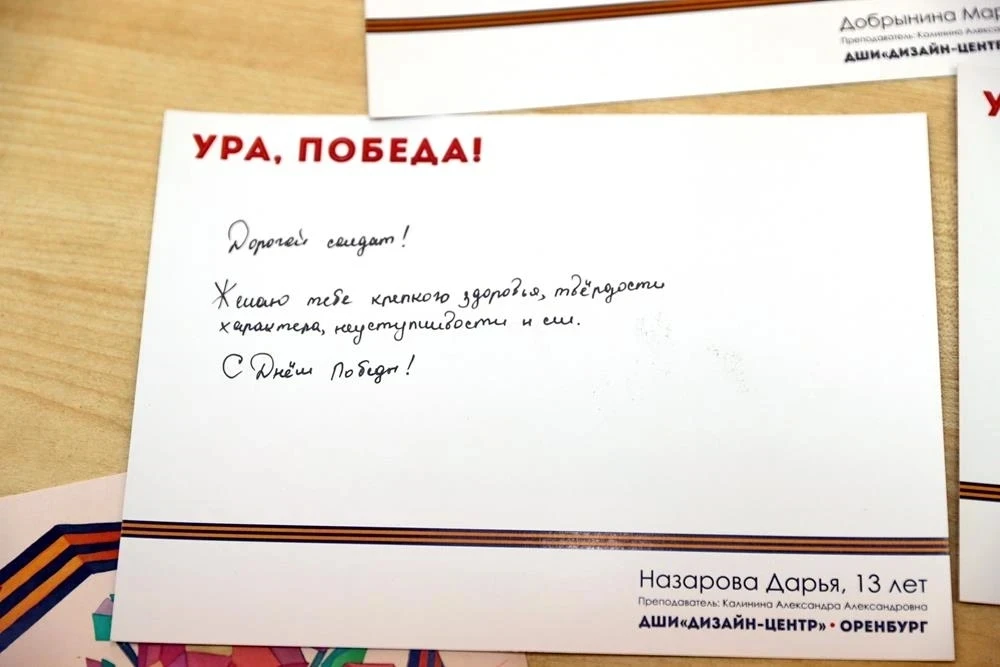 Добрынина Мар
Преподаватель: Калинина Алекса
ДШИ«ДИЗАЙН-ЦЕНТР
УРА, ПОБЕДА!
Дорогой солдат!
Желаю тебе крепкого здоровья, твёрдости
характера, неуступчивости и сил.
С Днём Победы!
Назарова Дарья, 13 лет
Преподаватель: Калинина Александра Александровна
ДШИ«ДИЗАЙН-ЦЕНТР» • ОРЕНБУРГ
У